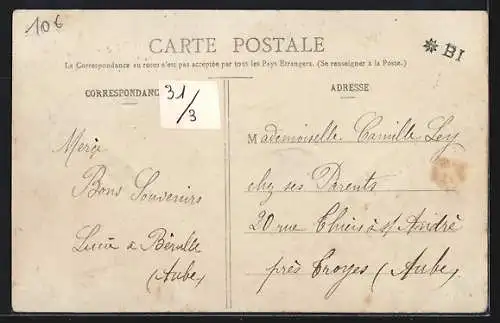 10€
* BI
CARTE POSTALE
La Correspondance au recto n'est pas acceptée par tous les Pays Etrangers. (Se renseigner à la Poste.)
CORRESPONDANC
31/3
ADRESSE
Merci
Bons Souvenirs
Lucie à
(Aube)
Mademoiselle Camille Ley
chez ses Parents
20 rue à St André
près Troyes (Aube)